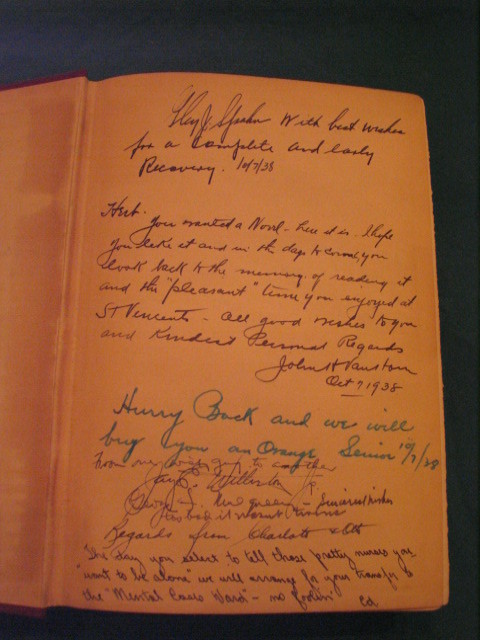 With best wishes
for a complete and early
Recovery. 10/7/38
Herb.
You wanted a Novel - here it is. I hope
you like it and in the days to come, you
look back to the memory of reading it
and the "pleasant" time you enjoyed at
St Vincents - All good wishes to you
and Kindest Personal Regards
John
Oct 7 1938
Hurry Back and we will
buy you an Orange Senior 10/7/38
From one to another
Jay Jr.
Sincerest wishes
Regards from Charlotte & Ott
The day you select to tell those pretty nurses you
"want to be alone" we will arrange for your transfer to
the "Mental Cases Ward" - no foolin'
Ed